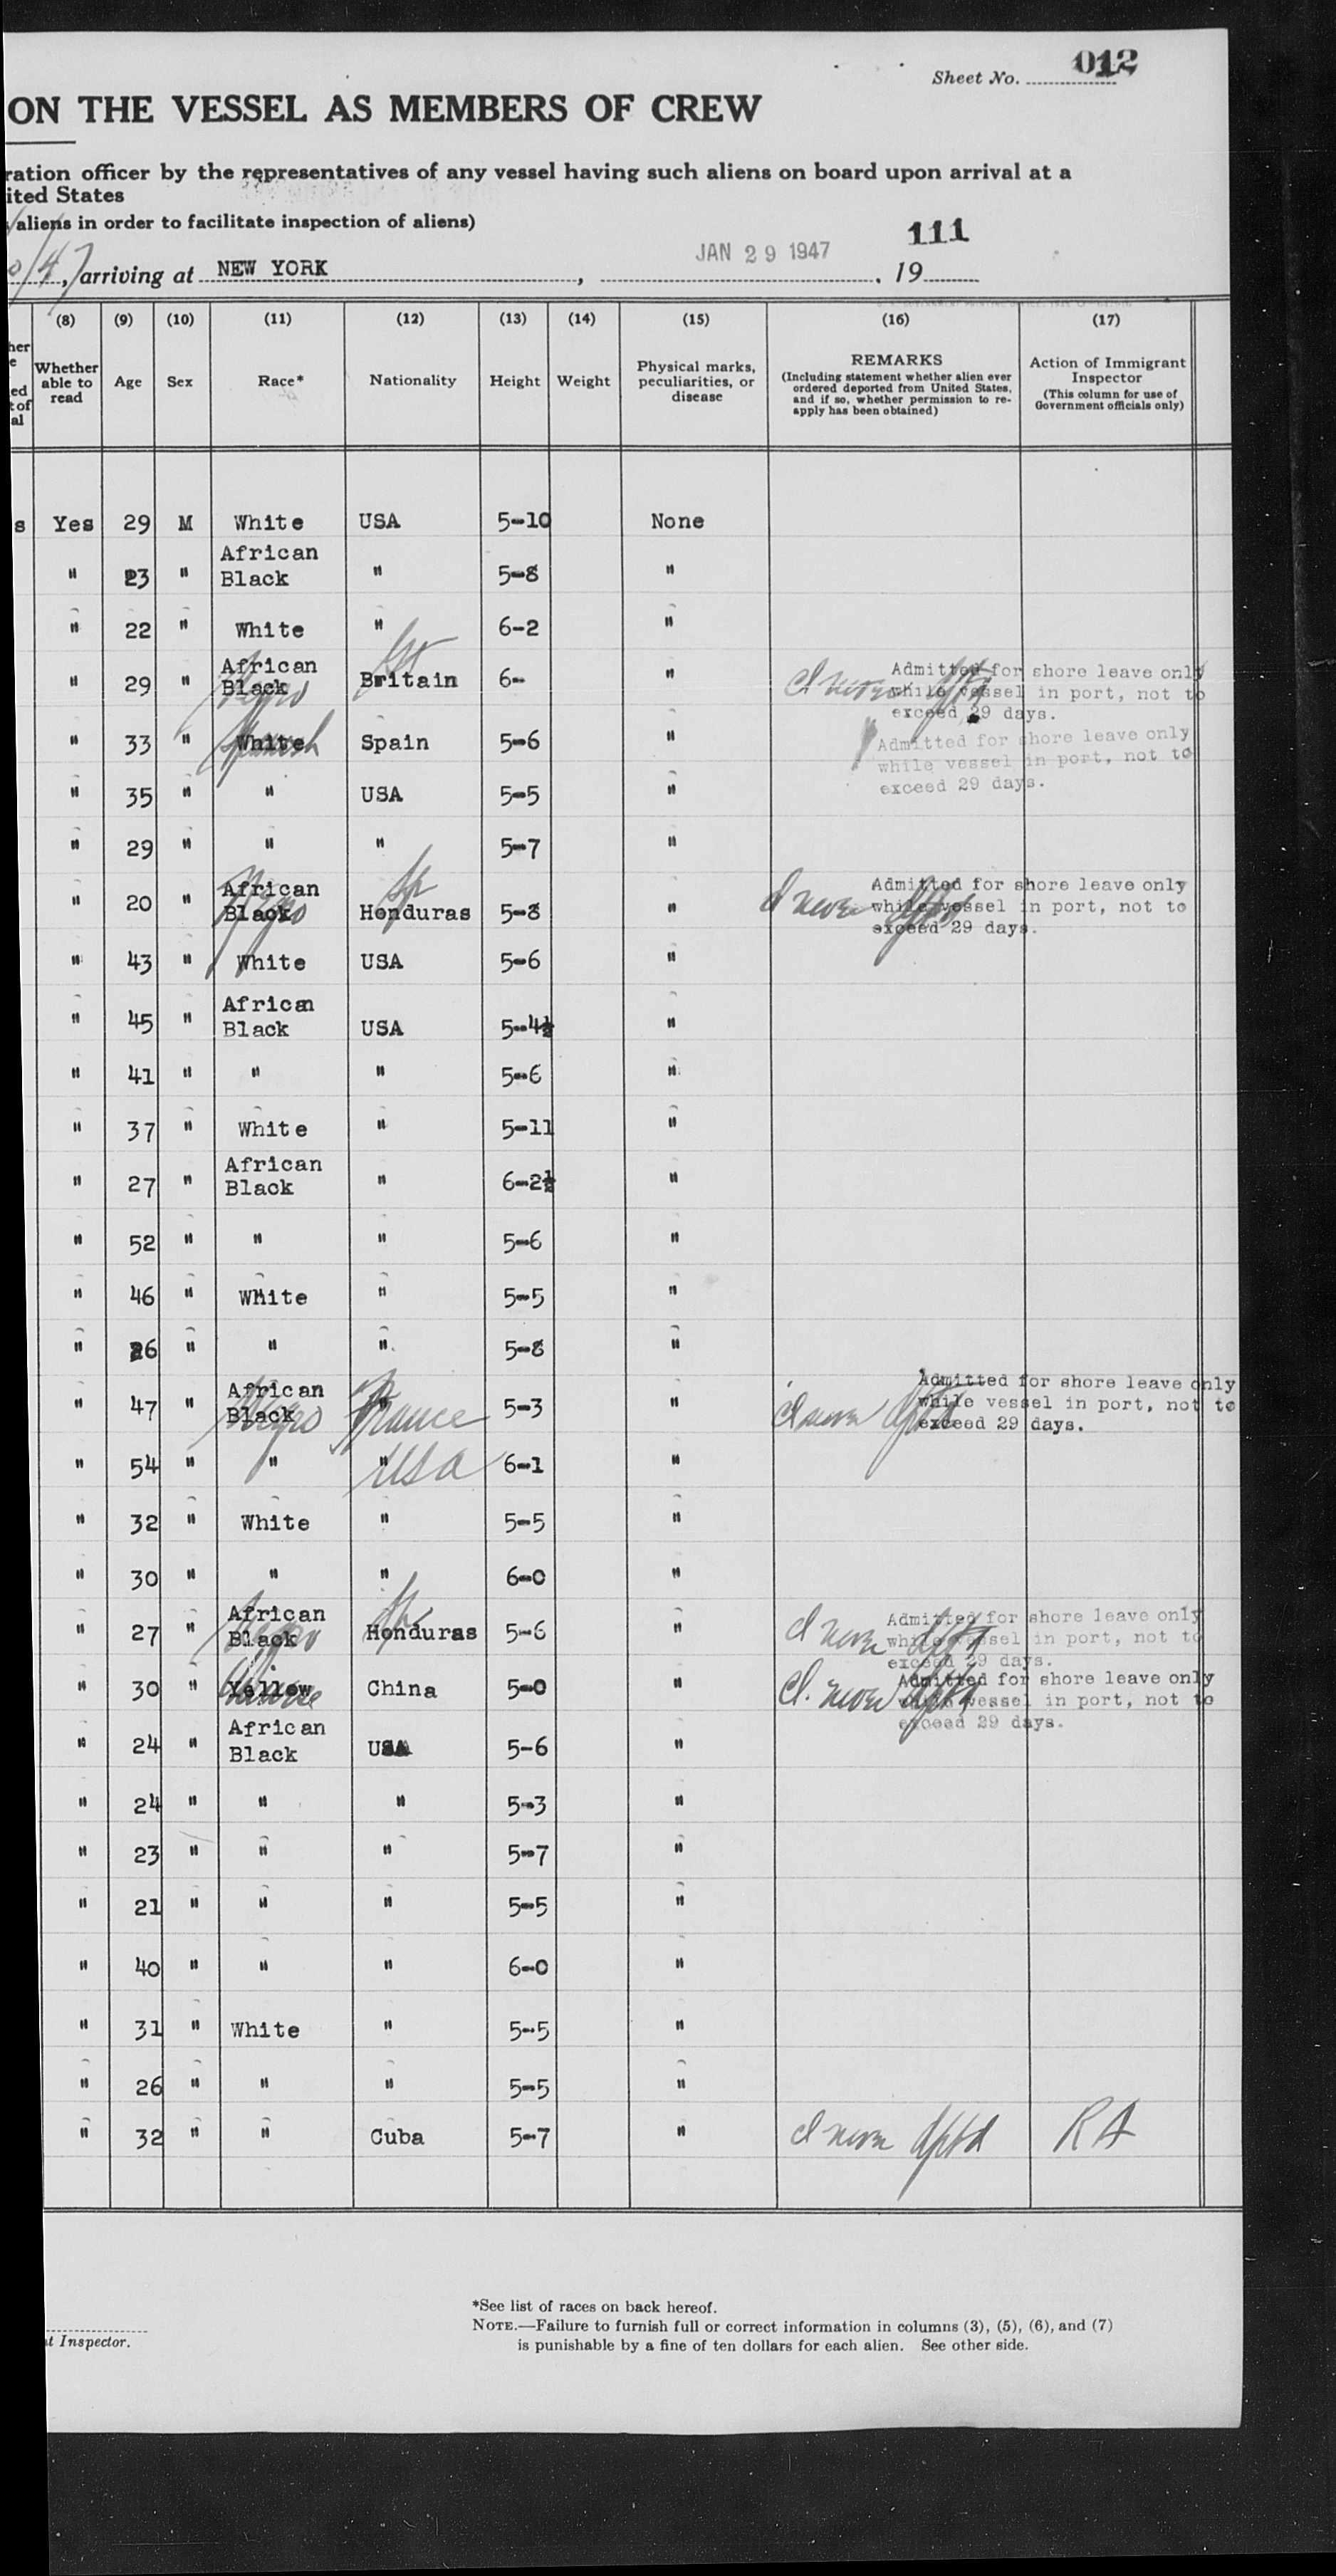 Sheet No. 012
ON THE VESSEL AS MEMBERS OF CREW
ration officer by the representatives of any vessel having such aliens on board upon arrival at a
ited States
aliens in order to facilitate inspection of aliens)
111
JAN 29 1947
, arriving at NEW YORK , , 19
(8) (9) (10) (11) (12) (13) (14) (15) (16) (17)
Whether able to read Age Sex Race* Nationality Height Weight Physical marks, peculiarities, or disease REMARKS (Including statement whether alien ever ordered deported from United States, and if so, whether permission to re-apply has been obtained) Action of Immigrant Inspector (This column for use of Government officials only)
s Yes 29 M White USA 5-10 None
" 23 " African Black " 5-8 "
" 22 " White " 6-2 "
" 29 " African Black Negro Britain 6- " Cl never dptd Admitted for shore leave only while vessel in port, not to exceed 29 days.
" 33 " White Spanish Spain 5-6 " Admitted for shore leave only while vessel in port, not to exceed 29 days.
" 35 " " USA 5-5 "
" 29 " " " 5-7 "
" 20 " African Black Negro Honduras 5-8 " Cl never dptd Admitted for shore leave only while vessel in port, not to exceed 29 days.
" 43 " White USA 5-6 "
" 45 " African Black USA 5-4½ "
" 41 " " " 5-6 "
" 37 " White " 5-11 "
" 27 " African Black " 6-2½ "
" 52 " " " 5-6 "
" 46 " White " 5-5 "
" 26 " " " 5-8 "
" 47 " African Black Negro " France 5-3 " Cl never dptd Admitted for shore leave only while vessel in port, not to exceed 29 days.
" 54 " " " USA 6-1 "
" 32 " White " 5-5 "
" 30 " " " 6-0 "
" 27 " African Black Negro Honduras 5-6 " Cl never dptd Admitted for shore leave only while vessel in port, not to exceed 29 days.
" 30 " Yellow Chinese China 5-0 " Cl. never dptd Admitted for shore leave only while vessel in port, not to exceed 29 days.
" 24 " African Black USA 5-6 "
" 24 " " " 5-3 "
" 23 " " " 5-7 "
" 21 " " " 5-5 "
" 40 " " " 6-0 "
" 31 " White " 5-5 "
" 26 " " " 5-5 "
" 32 " " Cuba 5-7 " Cl never dptd RA
*See list of races on back hereof.
NOTE.—Failure to furnish full or correct information in columns (3), (5), (6), and (7)
is punishable by a fine of ten dollars for each alien. See other side.
t Inspector.